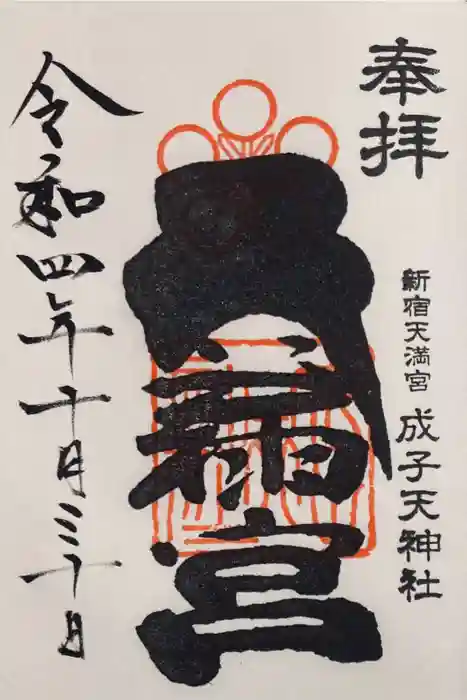 奉拝
新宿天満宮 成子天神社
天満宮
令和四年十月三十日